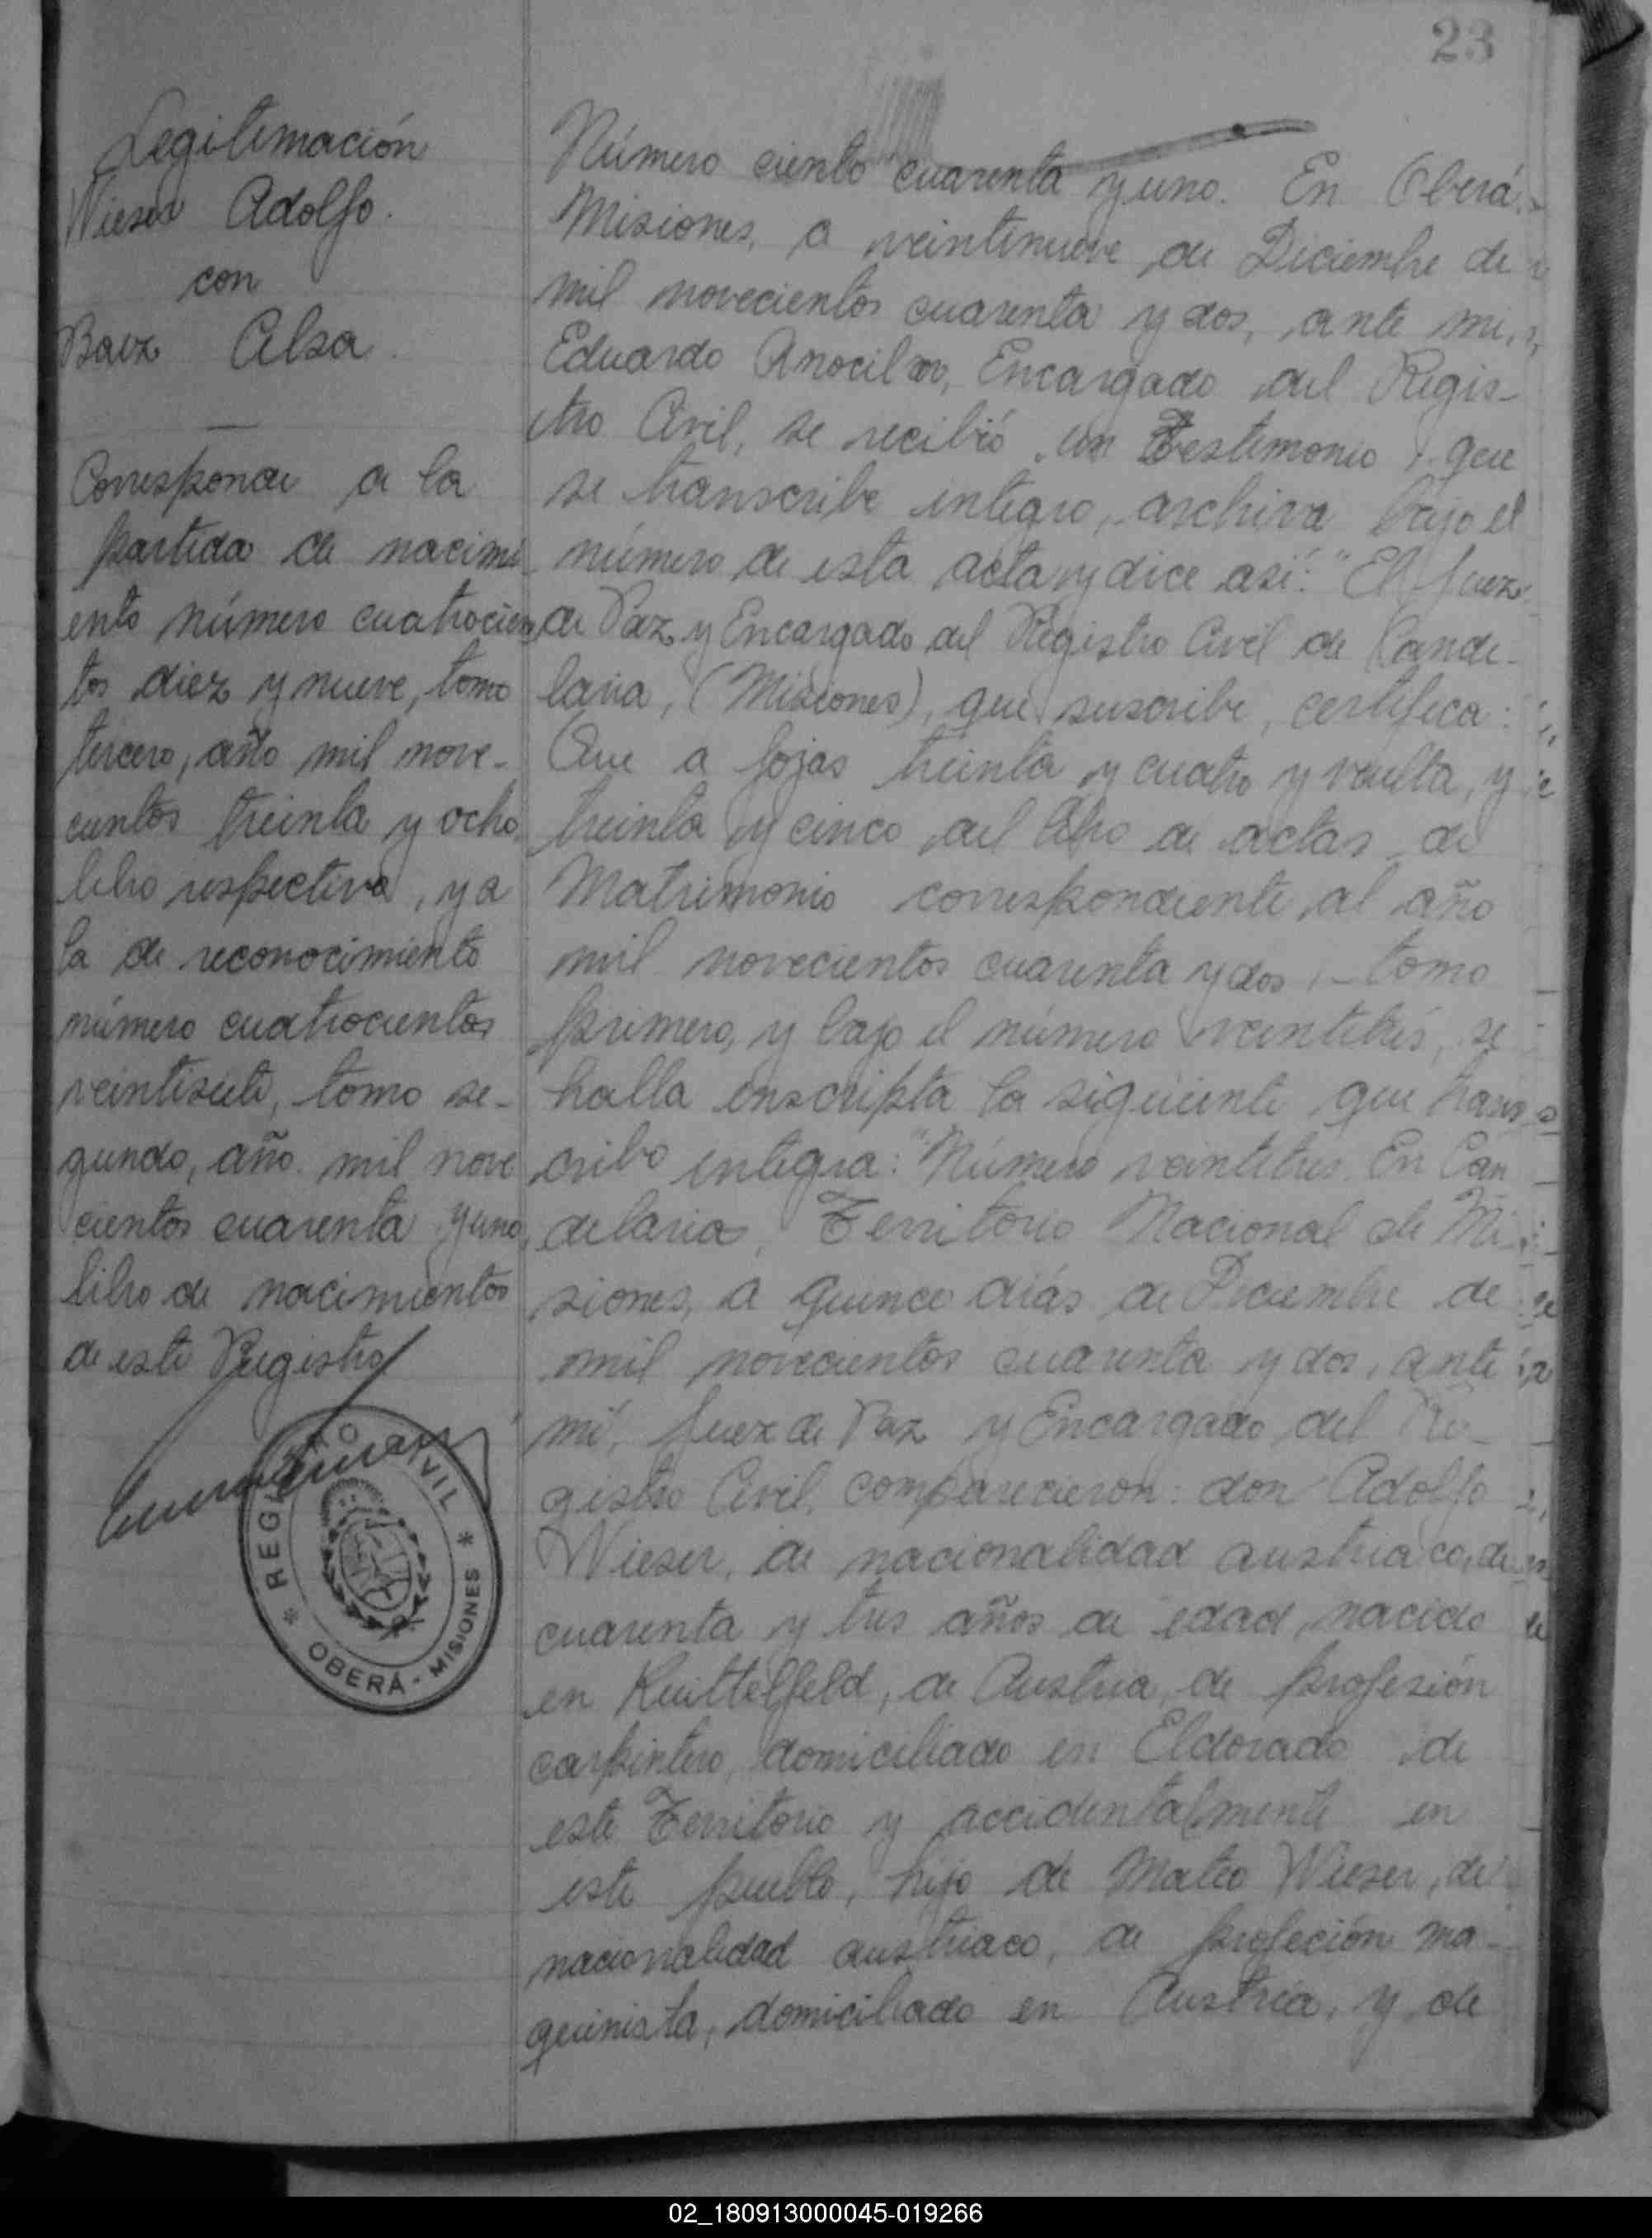 23
Legitimación
Wieser Adolfo.
con
Baez Elsa.
Corresponde a la
partida de nacimi
ento número cuatrocien
tos diez y nueve, tomo
tercero, año mil nove-
cientos treinta y ocho,
libro respectivo, y a
la de reconocimiento
número cuatrocientos
veintisiete, tomo se-
gundo, año mil nove
cientos cuarenta y uno,
libro de nacimientos
de este Registro
REGISTRO CIVIL
OBERÁ - MISIONES
Número ciento cuarenta y uno. En Oberá,
Misiones, a veintinueve de Diciembre de
mil novecientos cuarenta y dos, ante mi,
Eduardo Encargado del Regis-
tro Civil, se recibió un Testimonio que
se transcribe integro, archiva bajo el
número de esta acta y dice así: "El Juez
de Paz y Encargado del Registro Civil de Cande-
laria, (Misiones), que suscribe, certifica:
Que a fojas treinta y cuatro y vuelta, y
treinta y cinco del libro de actas de
Matrimonio correspondiente al año
mil novecientos cuarenta y dos, - tomo
primero, y bajo el número veintitrés, se
halla inscripta la siguiente que trans
cribo integra: "Número veintitres. En Can
delaria, Territorio Nacional de Mi-
siones, a quince días de Diciembre de
mil novecientos cuarenta y dos, ante
mí, Juez de Paz y Encargado del Re-
gistro Civil, comparecieron: don Adolfo
Wieser, de nacionalidad austriaco, de
cuarenta y tres años de edad, nacido
en Knittelfeld, de Austria, de profesión
carpintero, domiciliado en Eldorado de
este Territorio y accidentalmente en
este pueblo, hijo de Mateo Wieser, de
nacionalidad austriaco, de profeción ma-
quinista, domiciliado en Austria, y de
02_180913000045-019266